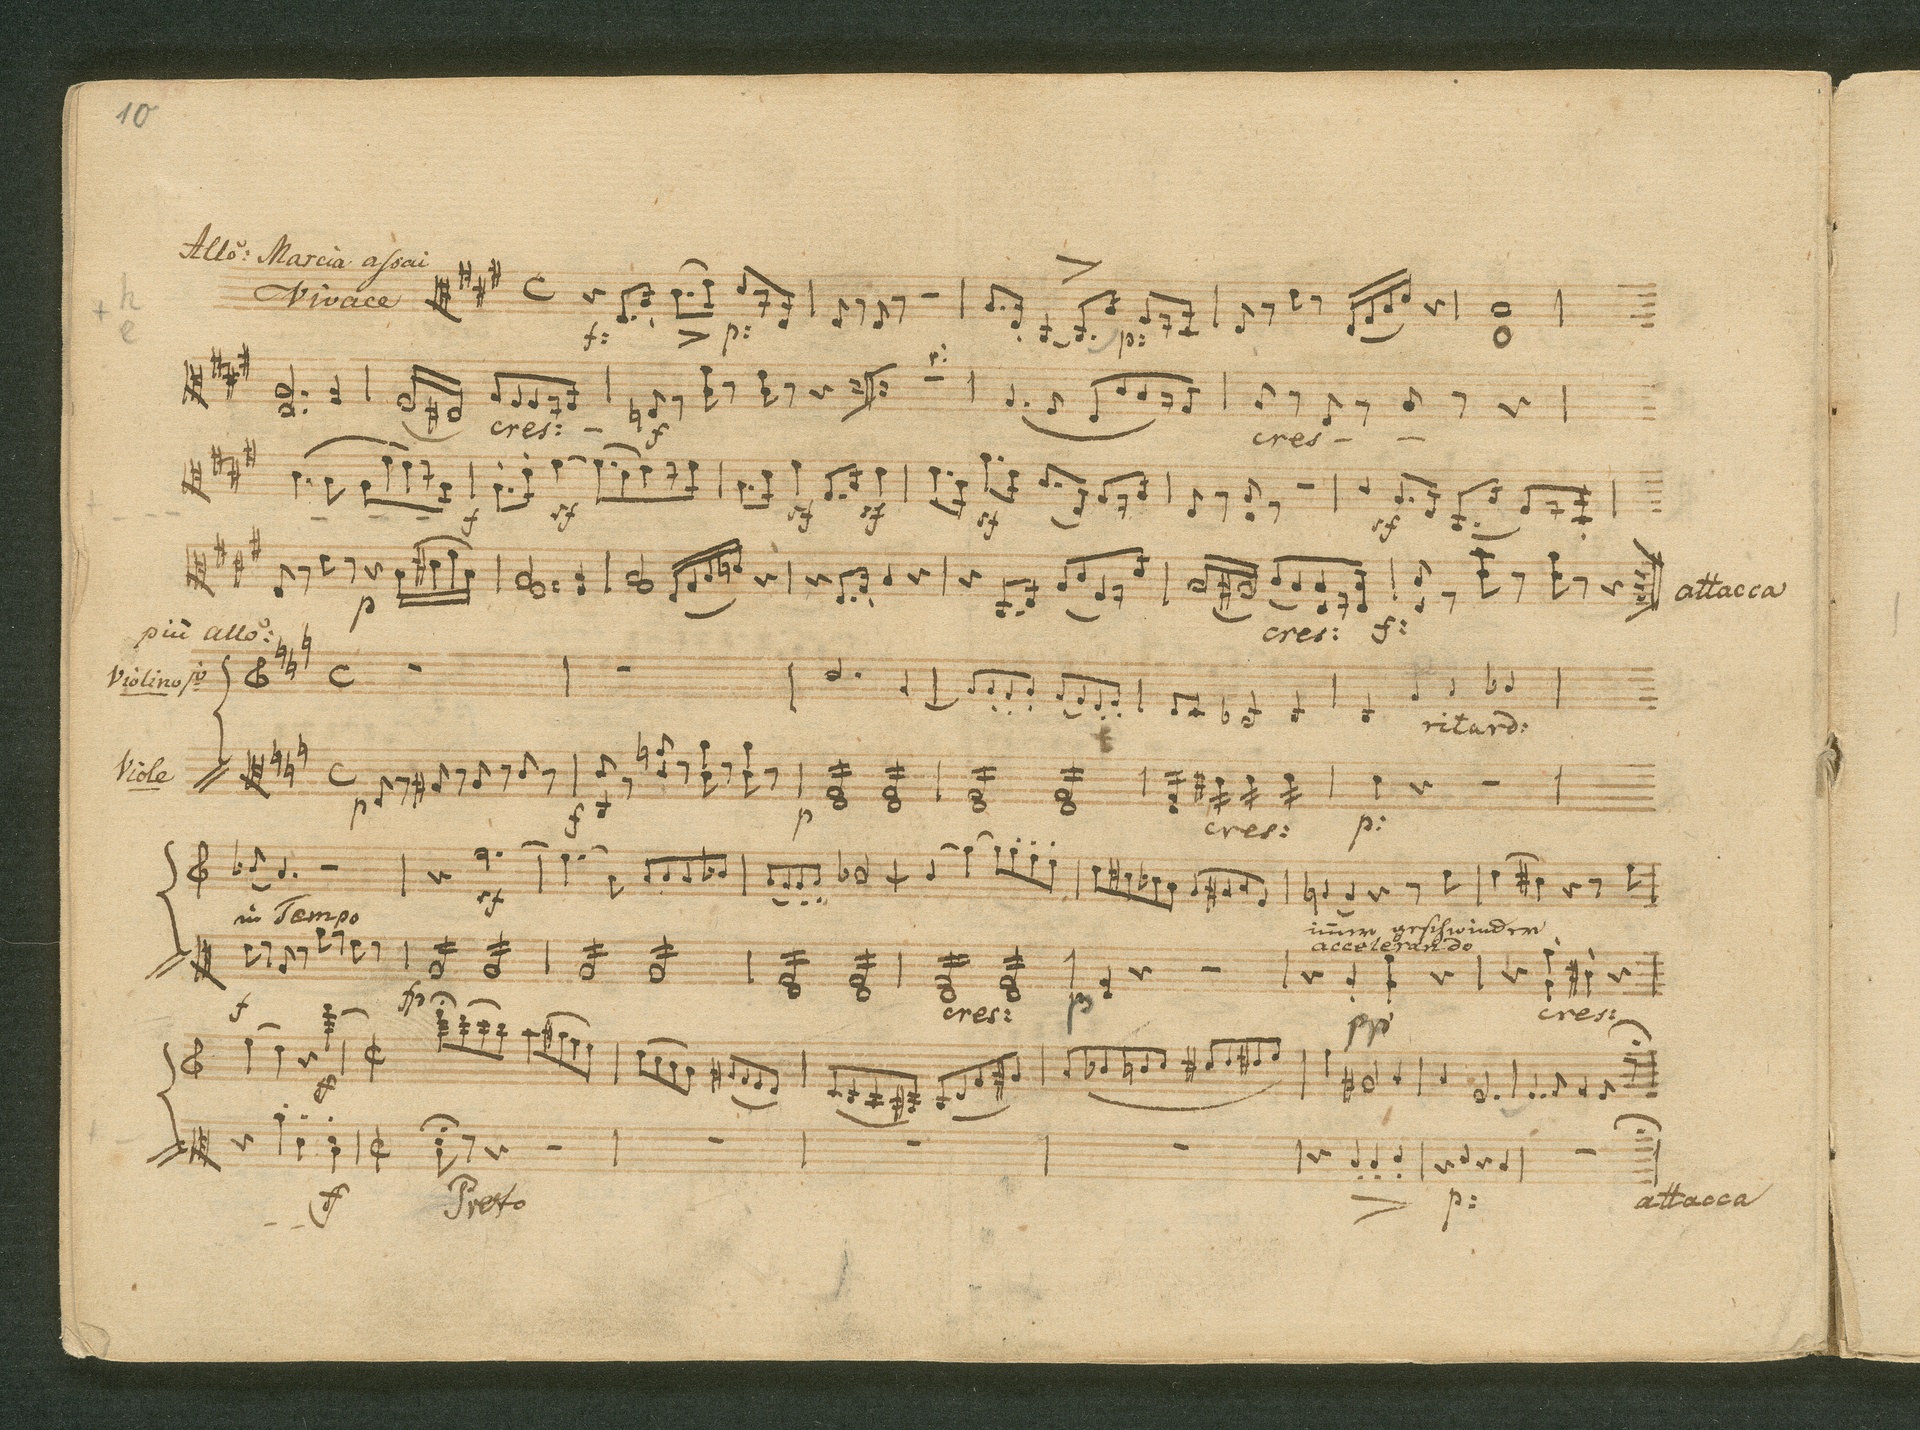 10
Allo: Marcia assai
Vivace
+ h
e
f: > p: > p:
p:
cres: – f cres – –
f sf sf sf sf sf
p cres: f: attacca
più allo:
Violino po
ritard:
Viole
p f p cres: p:
sf
in Tempo
immer geschwinder
accelerando
f fp cres: p pp cres:
ff
ff Presto > p: attacca